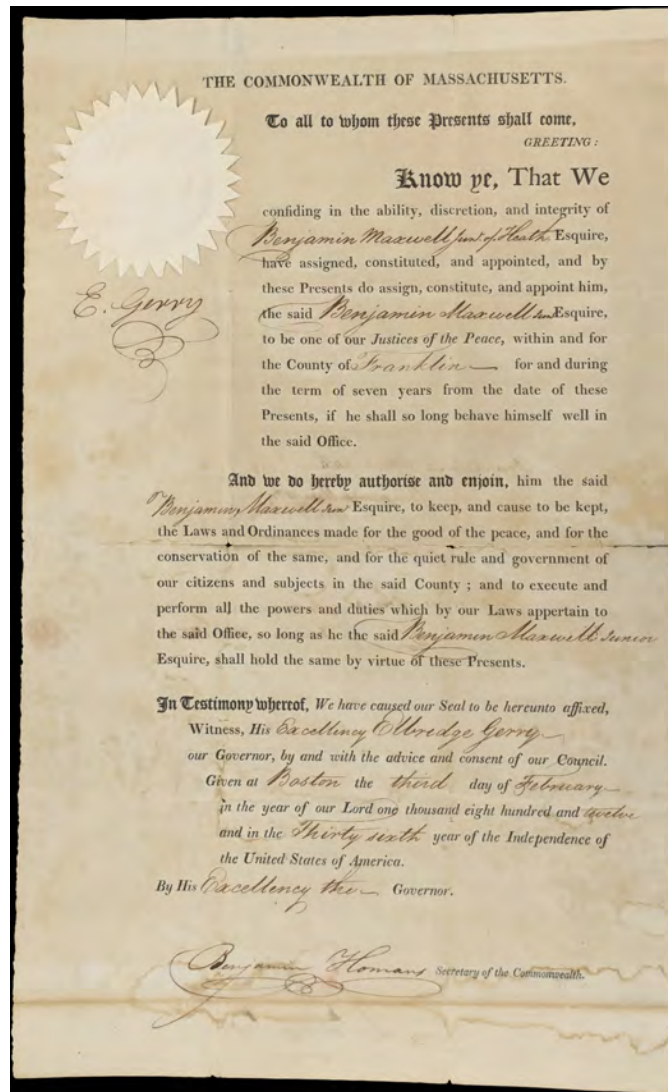 THE COMMONWEALTH OF MASSACHUSETTS.
To all to whom these Presents shall come,
GREETING:
Know ye, That We
confiding in the ability, discretion, and integrity of
Benjamin Maxwell junr. of Heath Esquire,
have assigned, constituted, and appointed, and by
these Presents do assign, constitute, and appoint him,
the said Benjamin Maxwell Jun Esquire,
to be one of our Justices of the Peace, within and for
the County of Franklin — for and during
the term of seven years from the date of these
Presents, if he shall so long behave himself well in
the said Office.
E. Gerry
And we do hereby authorise and enjoin, him the said
Benjamin Maxwell Jun Esquire, to keep, and cause to be kept,
the Laws and Ordinances made for the good of the peace, and for the
conservation of the same, and for the quiet rule and government of
our citizens and subjects in the said County ; and to execute and
perform all the powers and duties which by our Laws appertain to
the said Office, so long as he the said Benjamin Maxwell Junior
Esquire, shall hold the same by virtue of these Presents.
In Testimony whereof, We have caused our Seal to be hereunto affixed,
Witness, His Excellency Elbridge Gerry
our Governor, by and with the advice and consent of our Council.
Given at Boston the third day of February
in the year of our Lord one thousand eight hundred and twelve
and in the Thirty sixth year of the Independence of
the United States of America.
By His Excellency the — Governor.
Benjamin Homans Secretary of the Commonwealth.